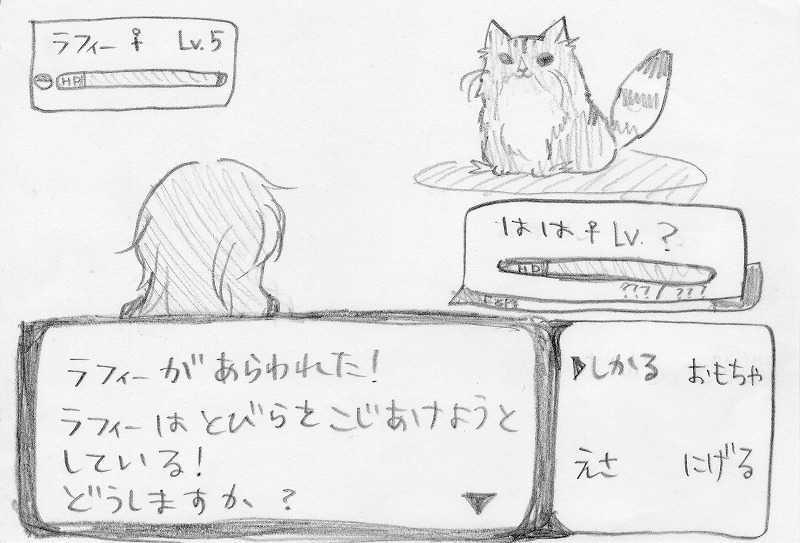 ラフィー♀ Lv.5
HP
はは♀ Lv.?
HP
???/???
ラフィーがあらわれた!
ラフィーはとびらをこじあけようと
している!
どうしますか?
▶しかる おもちゃ
えさ にげる